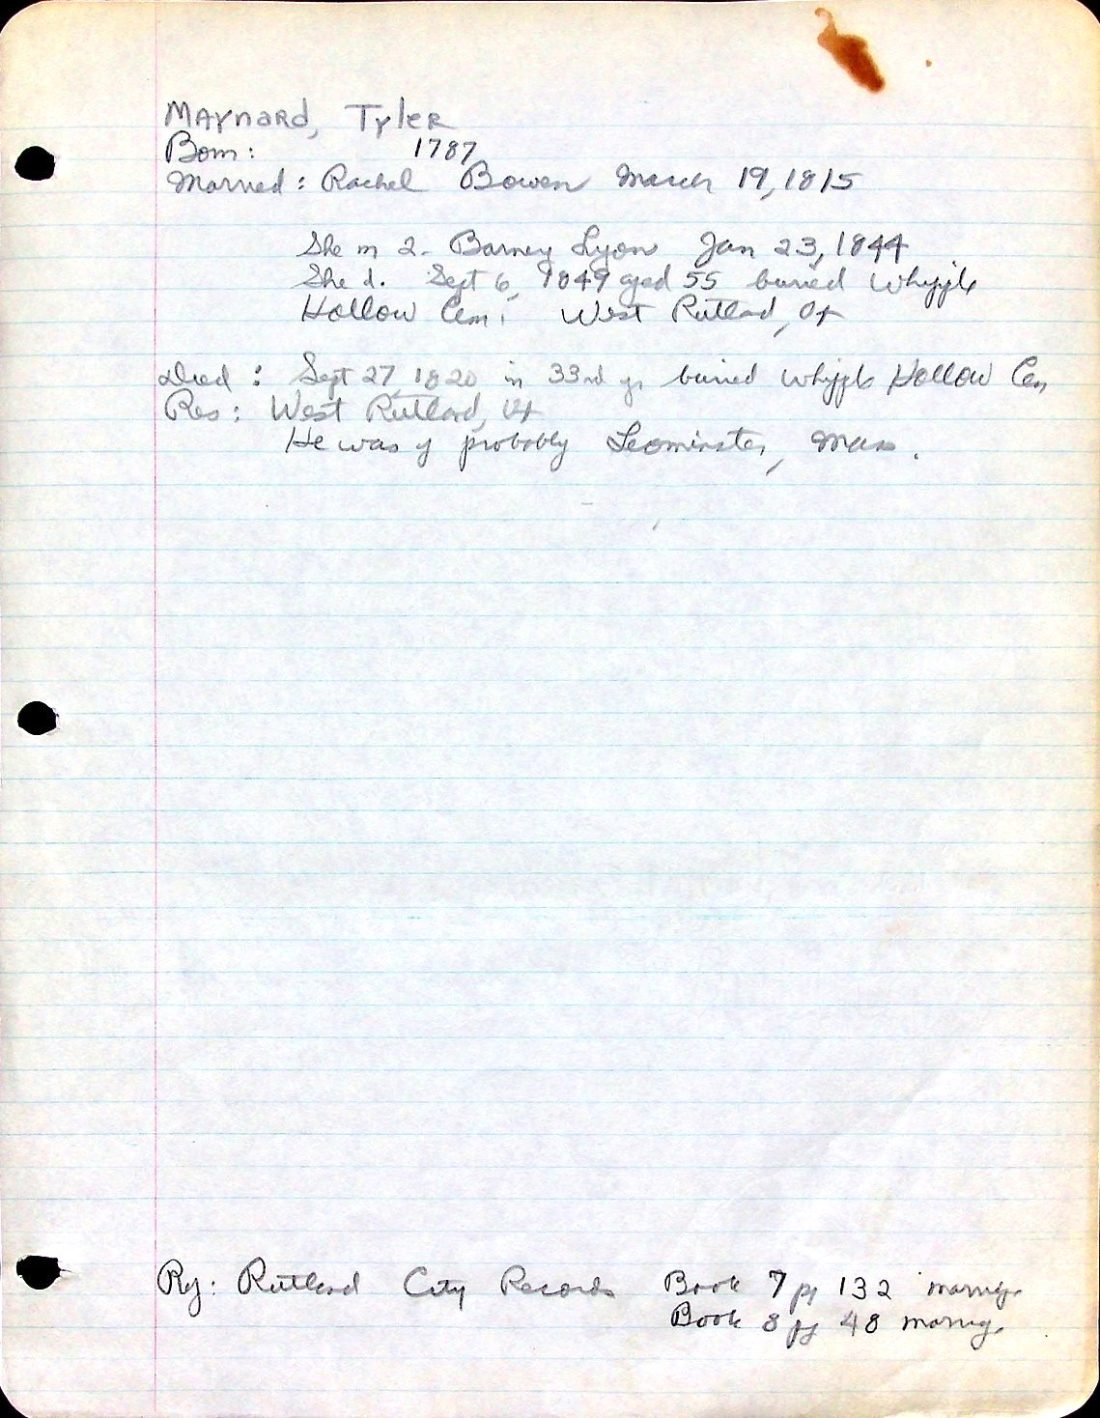 Maynard, Tyler
Born: 1787
Married: Rachel Bowen March 19, 1815
She m 2. Barney Lyon Jan 23, 1844
She d. Sept 6, 1849 aged 55 buried Whipple
Hollow Cem. West Rutland, Vt
Died: Sept 27, 1820 in 33rd yr buried Whipple Hollow Cem
Res: West Rutland, Vt
He was of probably Leominster, Mass.
Ref: Rutland City Records Book 7 pg 132 marriage
Book 8 pg 48 marriage